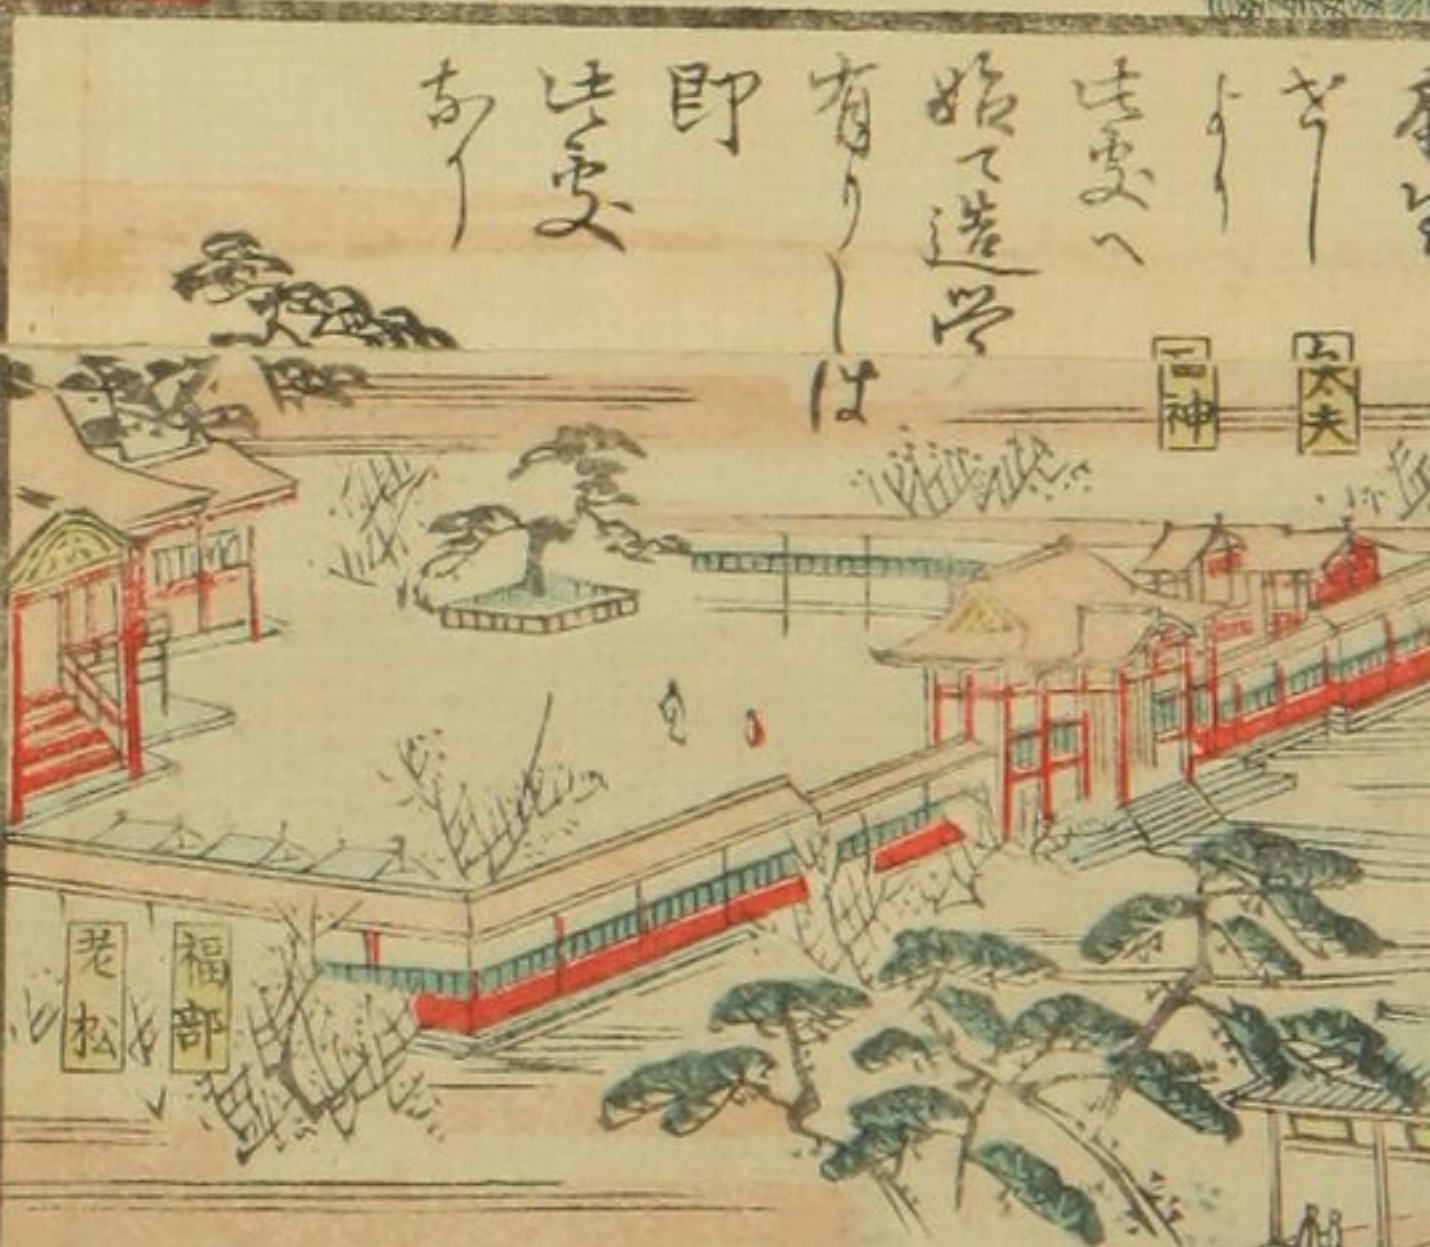 より
此処へ
始て造営
有りしは
即
此処
なり
太夫
神
福部
老松